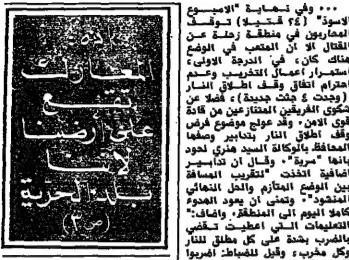 ... وفي نهاية "الاسبوع
الاسود" (٢٤ قتيلا) توقف
المحاربون في منطقة زحلة عن
القتال الا ان المتعب في الوضع
هناك كان، في الدرجة الاولى،
استمرار اعمال التخريب وعدم
احترام اتفاق وقف اطلاق النار
(وجدت ٤ جثث جديدة) فضلا عن
شكوى الفريقين المتنازعين من قادة
قوى الامن. وقد عولج موضوع فرض
وقف اطلاق النار بتدابير وصفها
المحافظ بالوكالة السيد هنري لحود
بانها "سرية"، وقال ان تدابير
اضافية اتخذت "لتقريب المسافة
بين الوضع المتأزم والحل النهائي
المنشود". وتمنى ان يعود الهدوء
كاملا اليوم الى المنطقة، واضاف:
التعليمات التي اعطيت تقضي
بالضرب بشدة على كل مطلق للنار
وكل مخرب، وقيل للضباط: اضربوا
المعارك
تقع
على ارضنا
لاننا
بلد الحرية
(ص ٣)